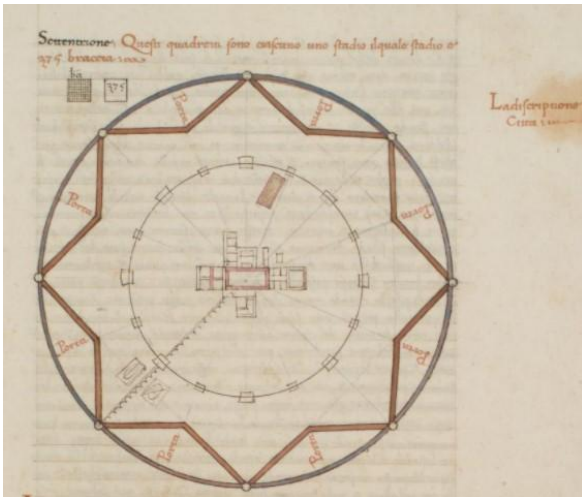 Settentrione: Questi quadretti sono ciascuno uno stadio ilquale stadio e
375 braccia
375
Ladiscriptione
Porta
Porta
Porta
Porta
Porta
Porta
Porta
Porta